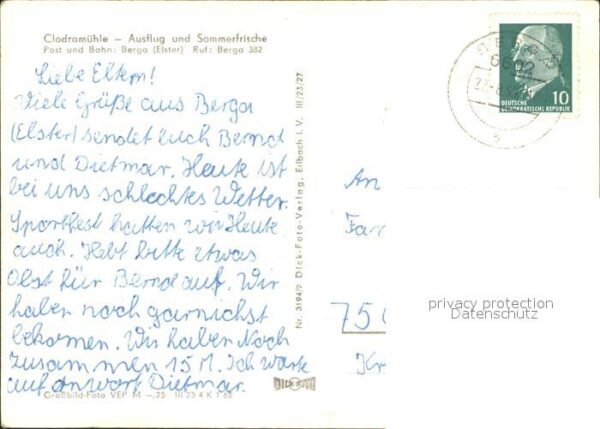 Clodramühle – Ausflug und Sommerfrische
Post und Bahn: Berga (Elster) Ruf: Berga 382
Liebe Eltern!
Viele Grüße aus Berga
(Elster) sendet Euch Bernd
und Dietmar. Heute ist
bei uns schlechtes Wetter.
Sportfest hatten wir Heute
auch. Hebt bitte etwas
Obst für Bernd auf. Wir
haben noch garnichst
bekommen. Wir haben Noch
zusammen 15 M. Ich warte
auf Antwort Dietmar.
Großbild-Foto VEP M –,25 III 23 4 K 1 60
Nr. 3194/9 Dick-Foto-Verlag, Erlbach i. V. III/23/27
DICK
BERGA
DEUTSCHE
DEMOKRATISCHE REPUBLIK
10
An
Fam
750
privacy protection
Datenschutz